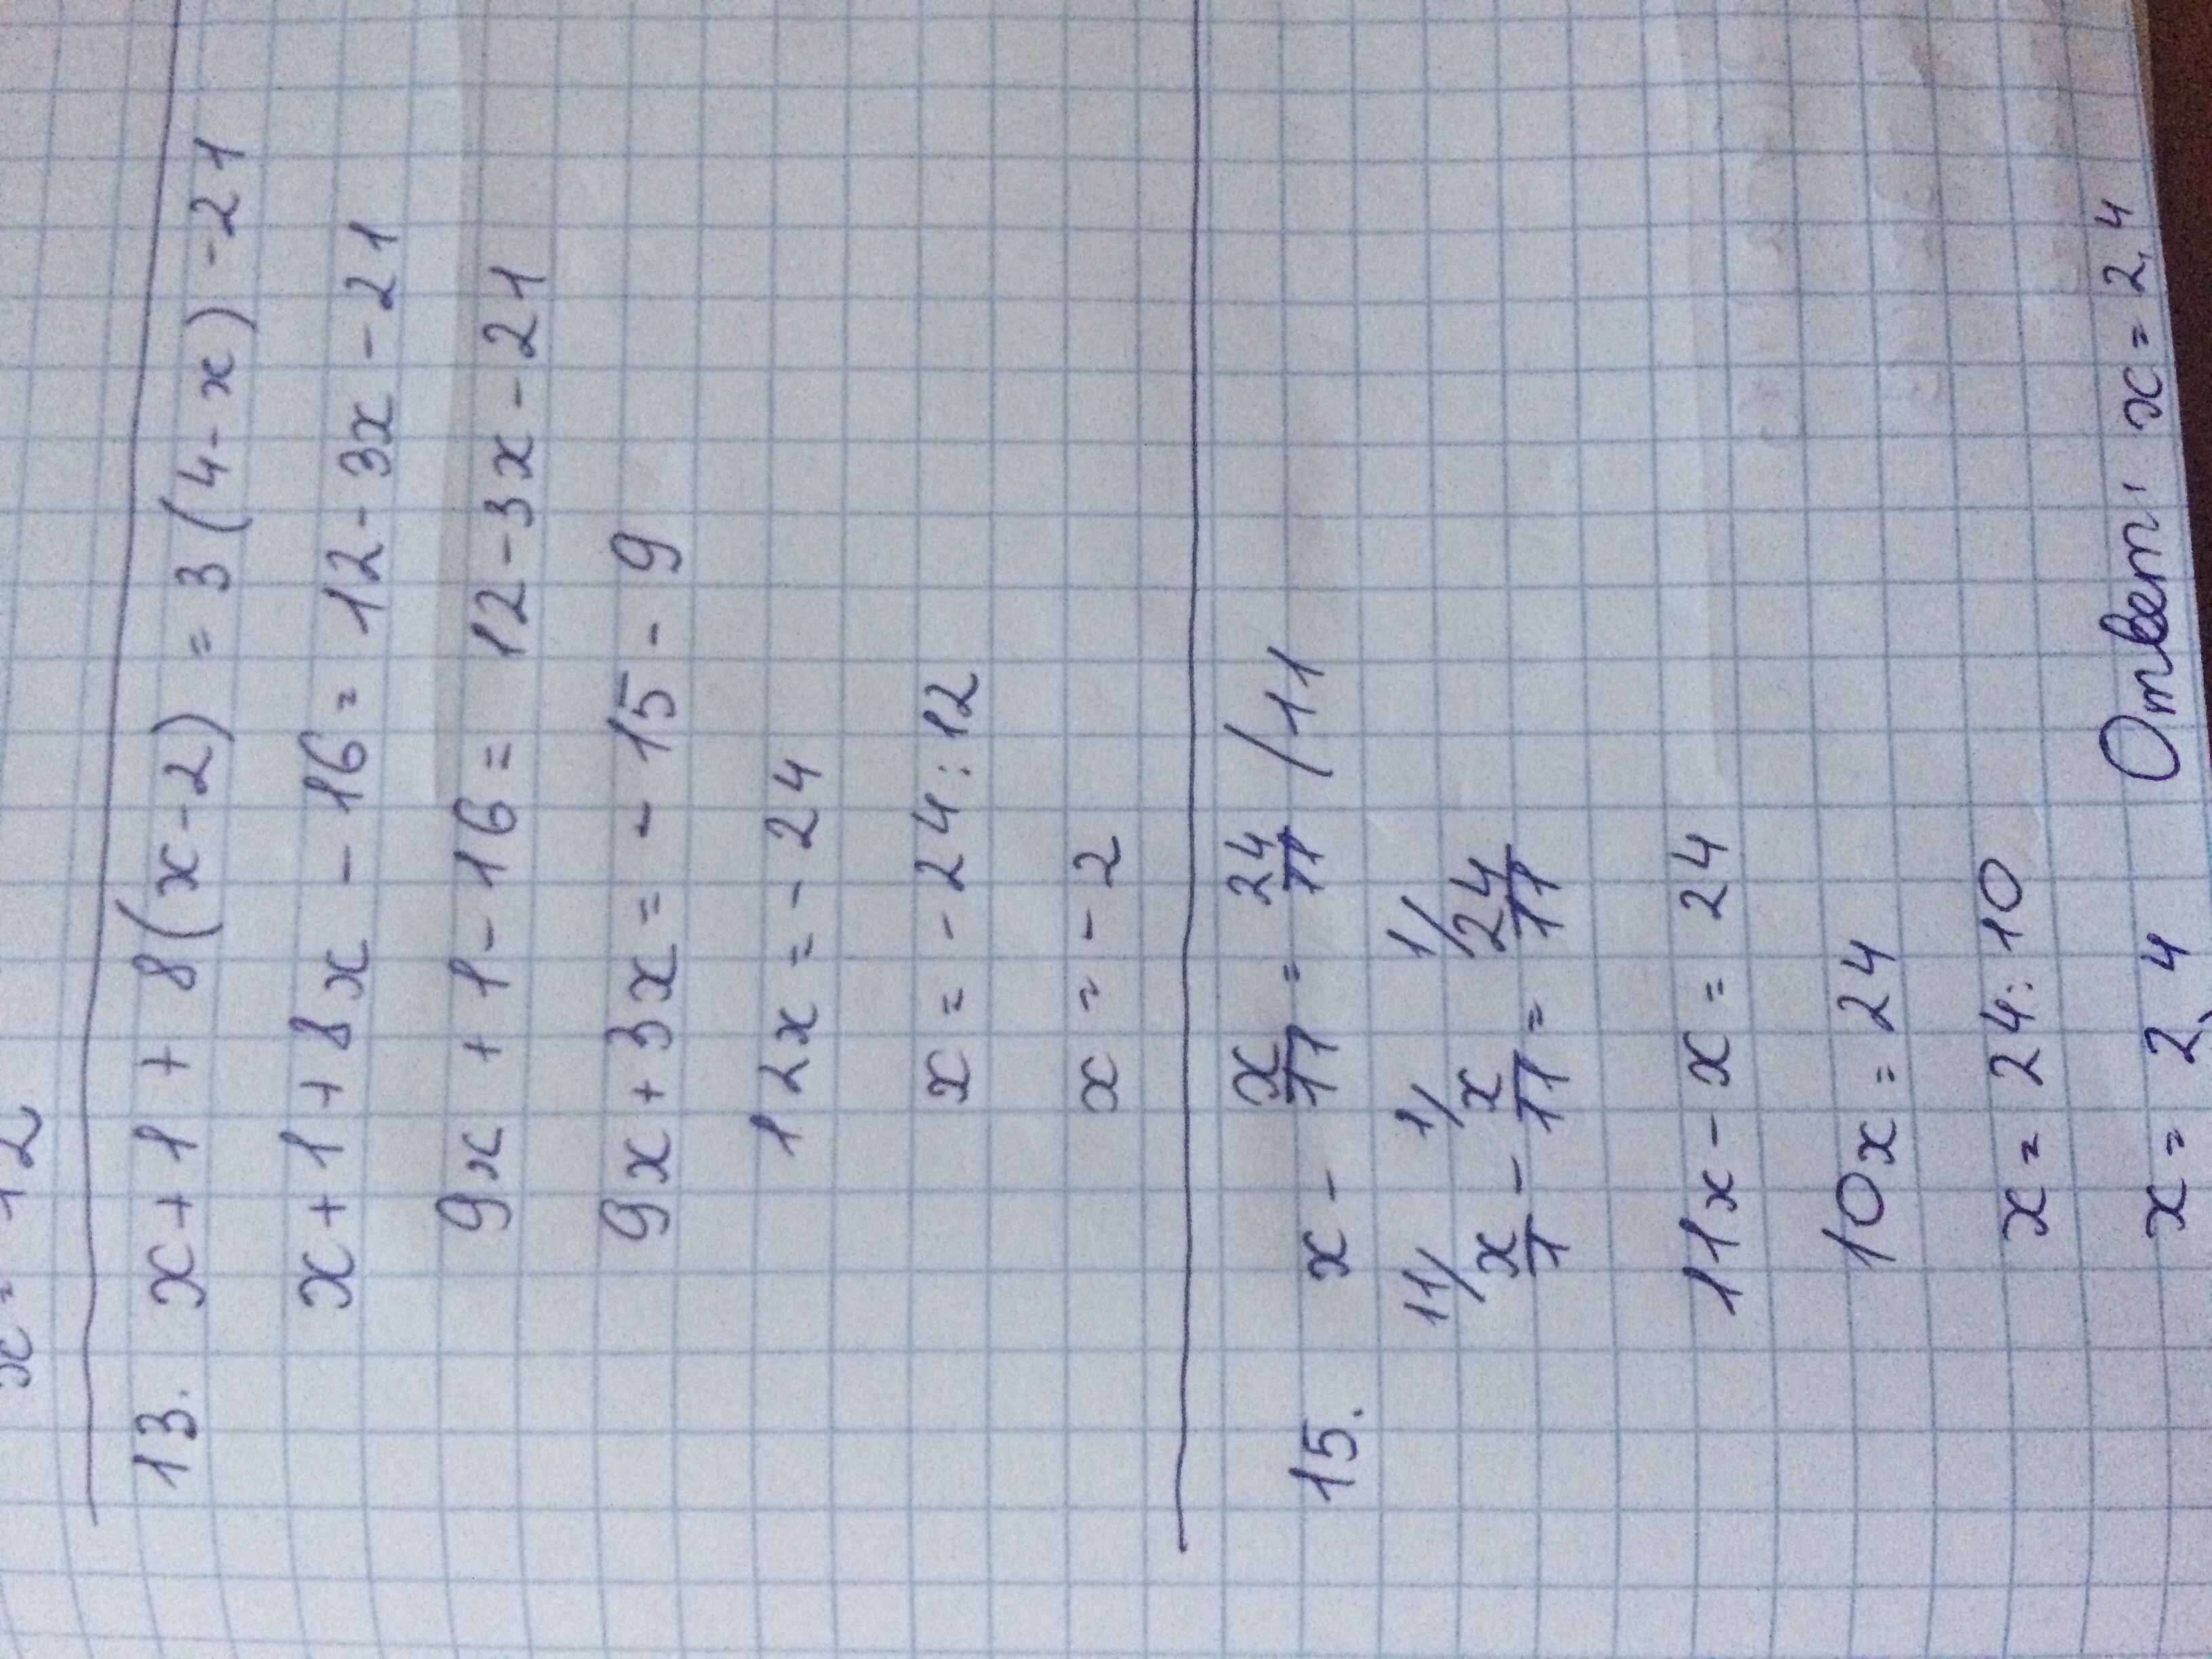 x = 12
13. x + 1 + 8(x - 2) = 3(4 - x) - 21
x + 1 + 8x - 16 = 12 - 3x - 21
9x + 1 - 16 = 12 - 3x - 21
9x + 3x = - 15 - 9
12x = - 24
x = - 24 : 12
x = - 2
15. x - x/11 = 24/11 /11
11/ x/1 - 1/ x/11 = 1/ 24/11
11x - x = 24
10x = 24
x = 24 : 10
x = 2,4 Ответ: x = 2,4